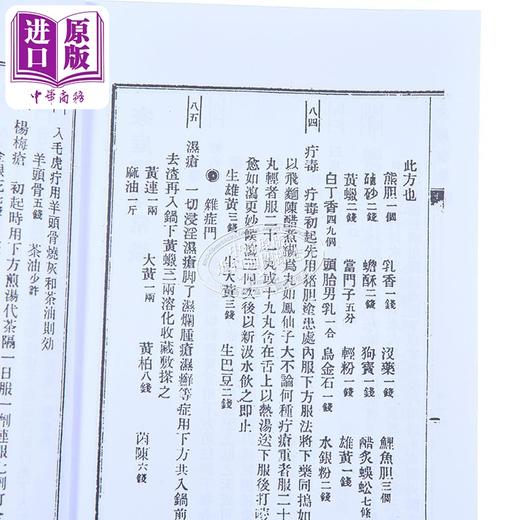 进口
原版
中華商務
此方也
熊胆一個 乳香一錢 沒藥一錢 鯉魚胆三個
硇砂二錢 蟾酥二錢 狗寳一錢 醋炙蜈蚣七條
黃蠟三錢 當門子五分 輕粉一錢 雄黃一錢
白丁香四九個 頭胎男乳一合 烏金石一錢 水銀粉二錢
八四 疔毒 疔毒初起先用猪胆塗患處內服下方服法將下藥同搗如
以飛麵陳醋煮糊爲丸如鳳仙子大不論何種疔瘡重者服二十
丸輕者服二十一丸或十九丸含在舌上以熱湯送下服後打
愈如瀉更妙候瀉三四次後以新汲水飲之即止
生雄黃三錢 生大黃三錢 生巴豆二錢
雜症門
八五 濕瘡 一切浸淫濕瘡脚丫濕爛腫瘡濕癬等症用下方共入鍋煎
去渣再入鍋下黃蠟三兩溶化收藏敷搽之
黃連一兩 大黃一兩 黃柏八錢 茵陳六錢
麻油一斤
入毛虎疔用羊頭骨燒灰和茶油則効
羊頭骨五錢 茶油少許
楊梅瘡 初起時用下方煎湯代茶隔一日服一劑連服七劑打